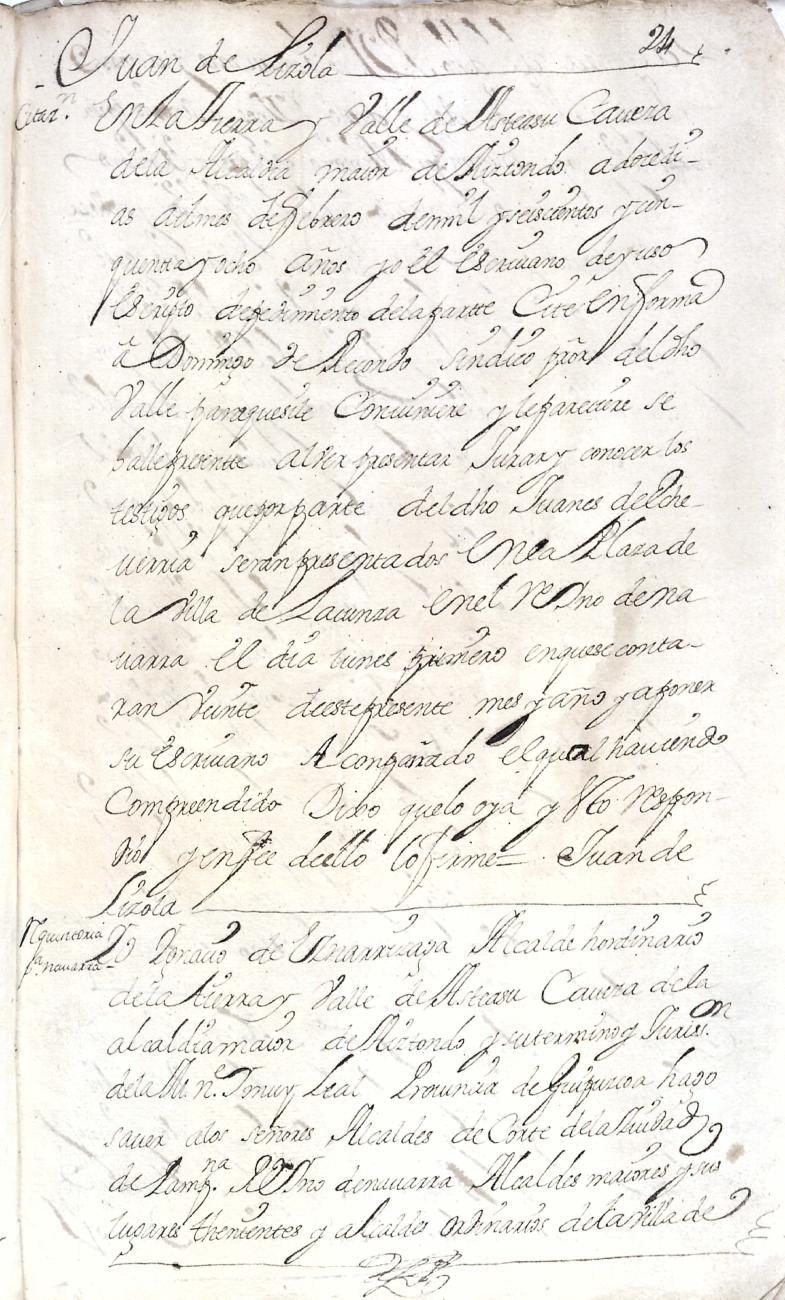 24
Juan de Lizola
Citaz.n
En la tierra y Valle de Asteasu Caveza
de la Alcaldia maior de Aiztondo a doze di-
as del mes de febrero de mil y seiscientos y cin-
quenta y ocho años yo el Escrivano de yuso
Escripto de pedimiento de la partte Cite en forma
a Domingo de Recondo sindico pror del dho
Valle para que si le Conviniere y le pareciere se
halle presente al ver presentar Jurar y conocer los
testigos que por parte del dho Juanes de Eche-
verria seran presentados En la Plaza de
la Villa de Lacunza en el Reyno de na
varra el dia lunes primero en que se conta-
ran Veinte de este presente mes y año y a poner
su Escrivano Acompañado el qual haviendo
Compreendido Dixo que lo oya y esto respon-
dio y en fee de ello lo firme = Juan de
Lizola
Requisitoria
pa. navarra
Yo Ignacio de Iznarrizaga Alcalde hordinario
de la tierra y Valle de Asteasu Caveza de la
alcaldia maior de Aiztondo y su termino y Jurisi.on
de la M. n.e y muy Leal Provincia de Guipuzcoa hago
saver a los señores Alcaldes de Corte de la Ciudad
de Pamp.na Reyno de navarra Alcaldes maiores y sus
lugares thenientes y alcaldes ordinarios de la Villa de